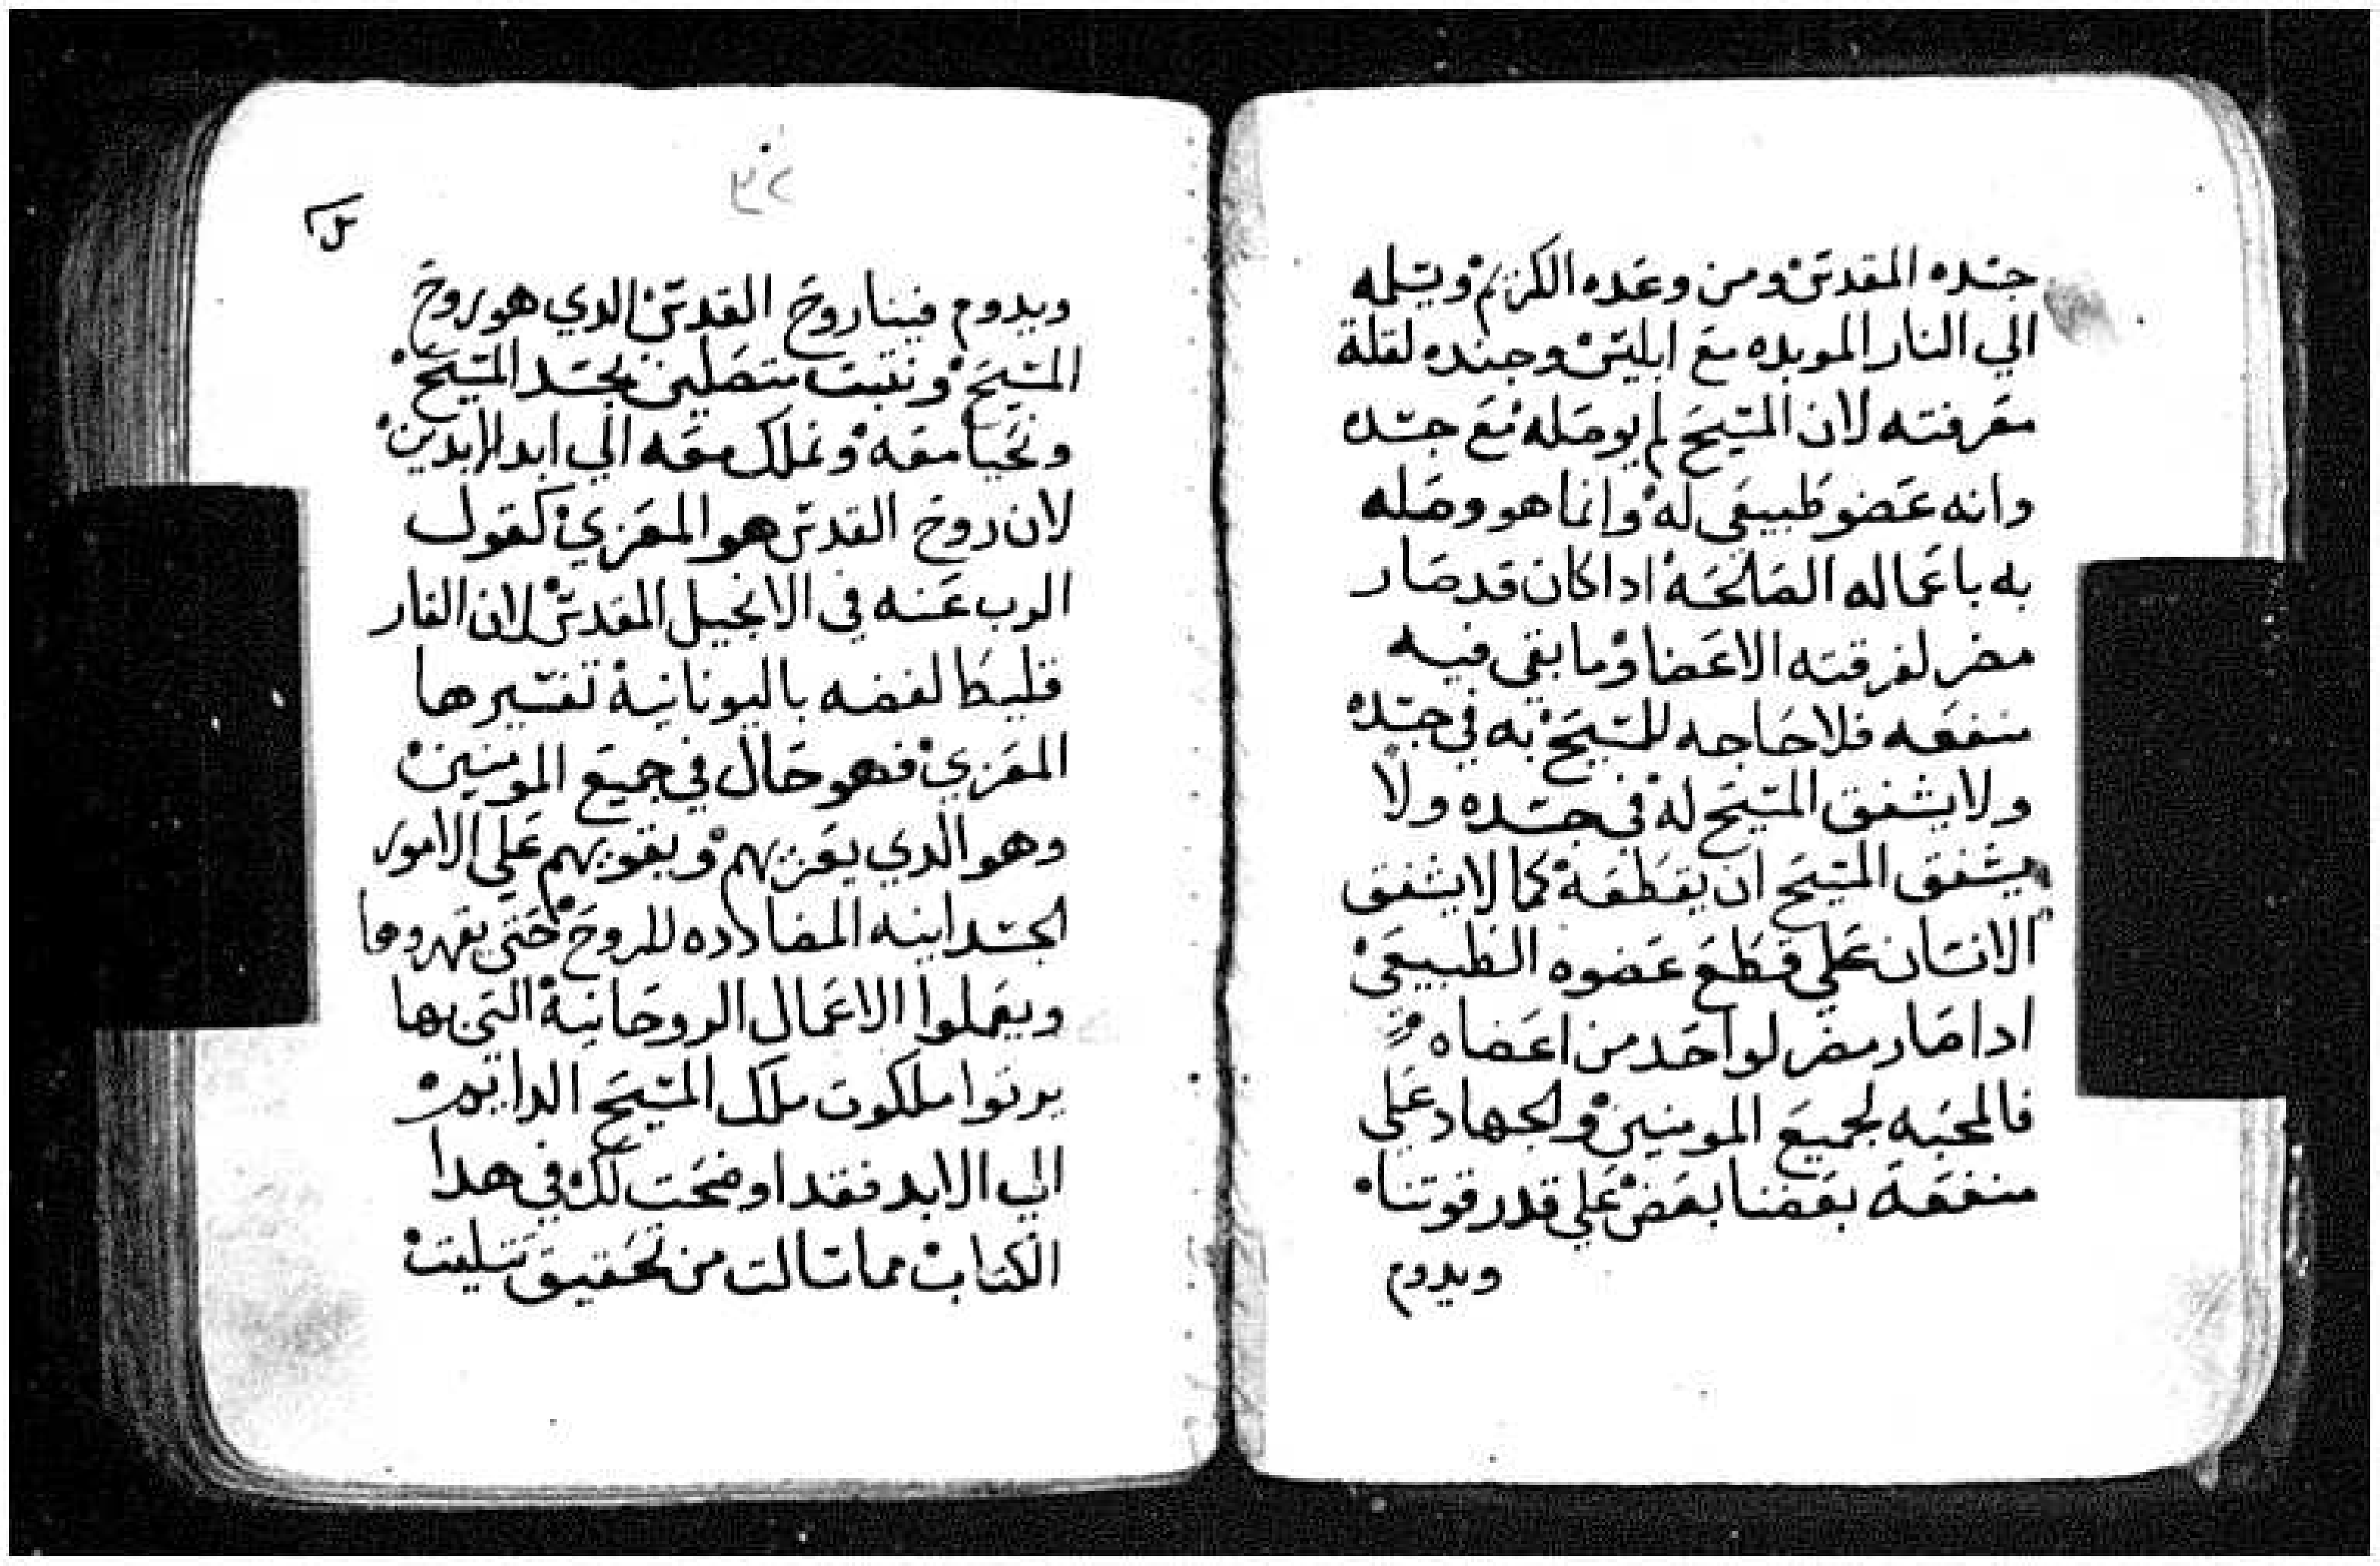 جسده المقدس ومن وعده الكريم ويسلمه
الي النار الموبده مع ابليس وجنده لقلة
معرفته لان المسيح لم يوصله مع جسده
وانه عضو طبيعي له وانما هو وصله
به باعماله الصالحة ادا كان قد صار
مضر لفرقته الاعضا وما بقي فيه
منفعه فلا حاجه للمسيح به في جسده
ولا يشفق المسيح له في جسده ولا
يشفق المسيح ان يقطعه كما لا يشفق
الانسان علي قطع عضوه الطبيعي
ادا صار مضر لواحد من اعضاه
فالمحبه لجميع المومنين ولجهاد علي
منفعة بعضنا بعض علي قدر قوتنا
ويدوم
٣٢
ويدوم فينا روح القدس الدي هو روح
المسيح ونتبت متصلين بجسد المسيح
ونحيا معه ونملك معه الي ابد الابدين
لان روح القدس هو المعزي كقول
الرب عنه في الانجيل المقدس لان الفار
قليط لفضه باليونانية تفسيرها
المعزي فهو حال في جميع المومنين
وهو الدي يعزيهم ويقويهم علي الامور
الجسدانيه المضادده للروح حتي يقهروها
ويعملوا الاعمال الروحانية التي بها
يرتوا ملكوت ملك المسيح الدايم
الي الابد فقد اوضحت لك في هدا
الكتاب مما سالت من تحقيق تتليت